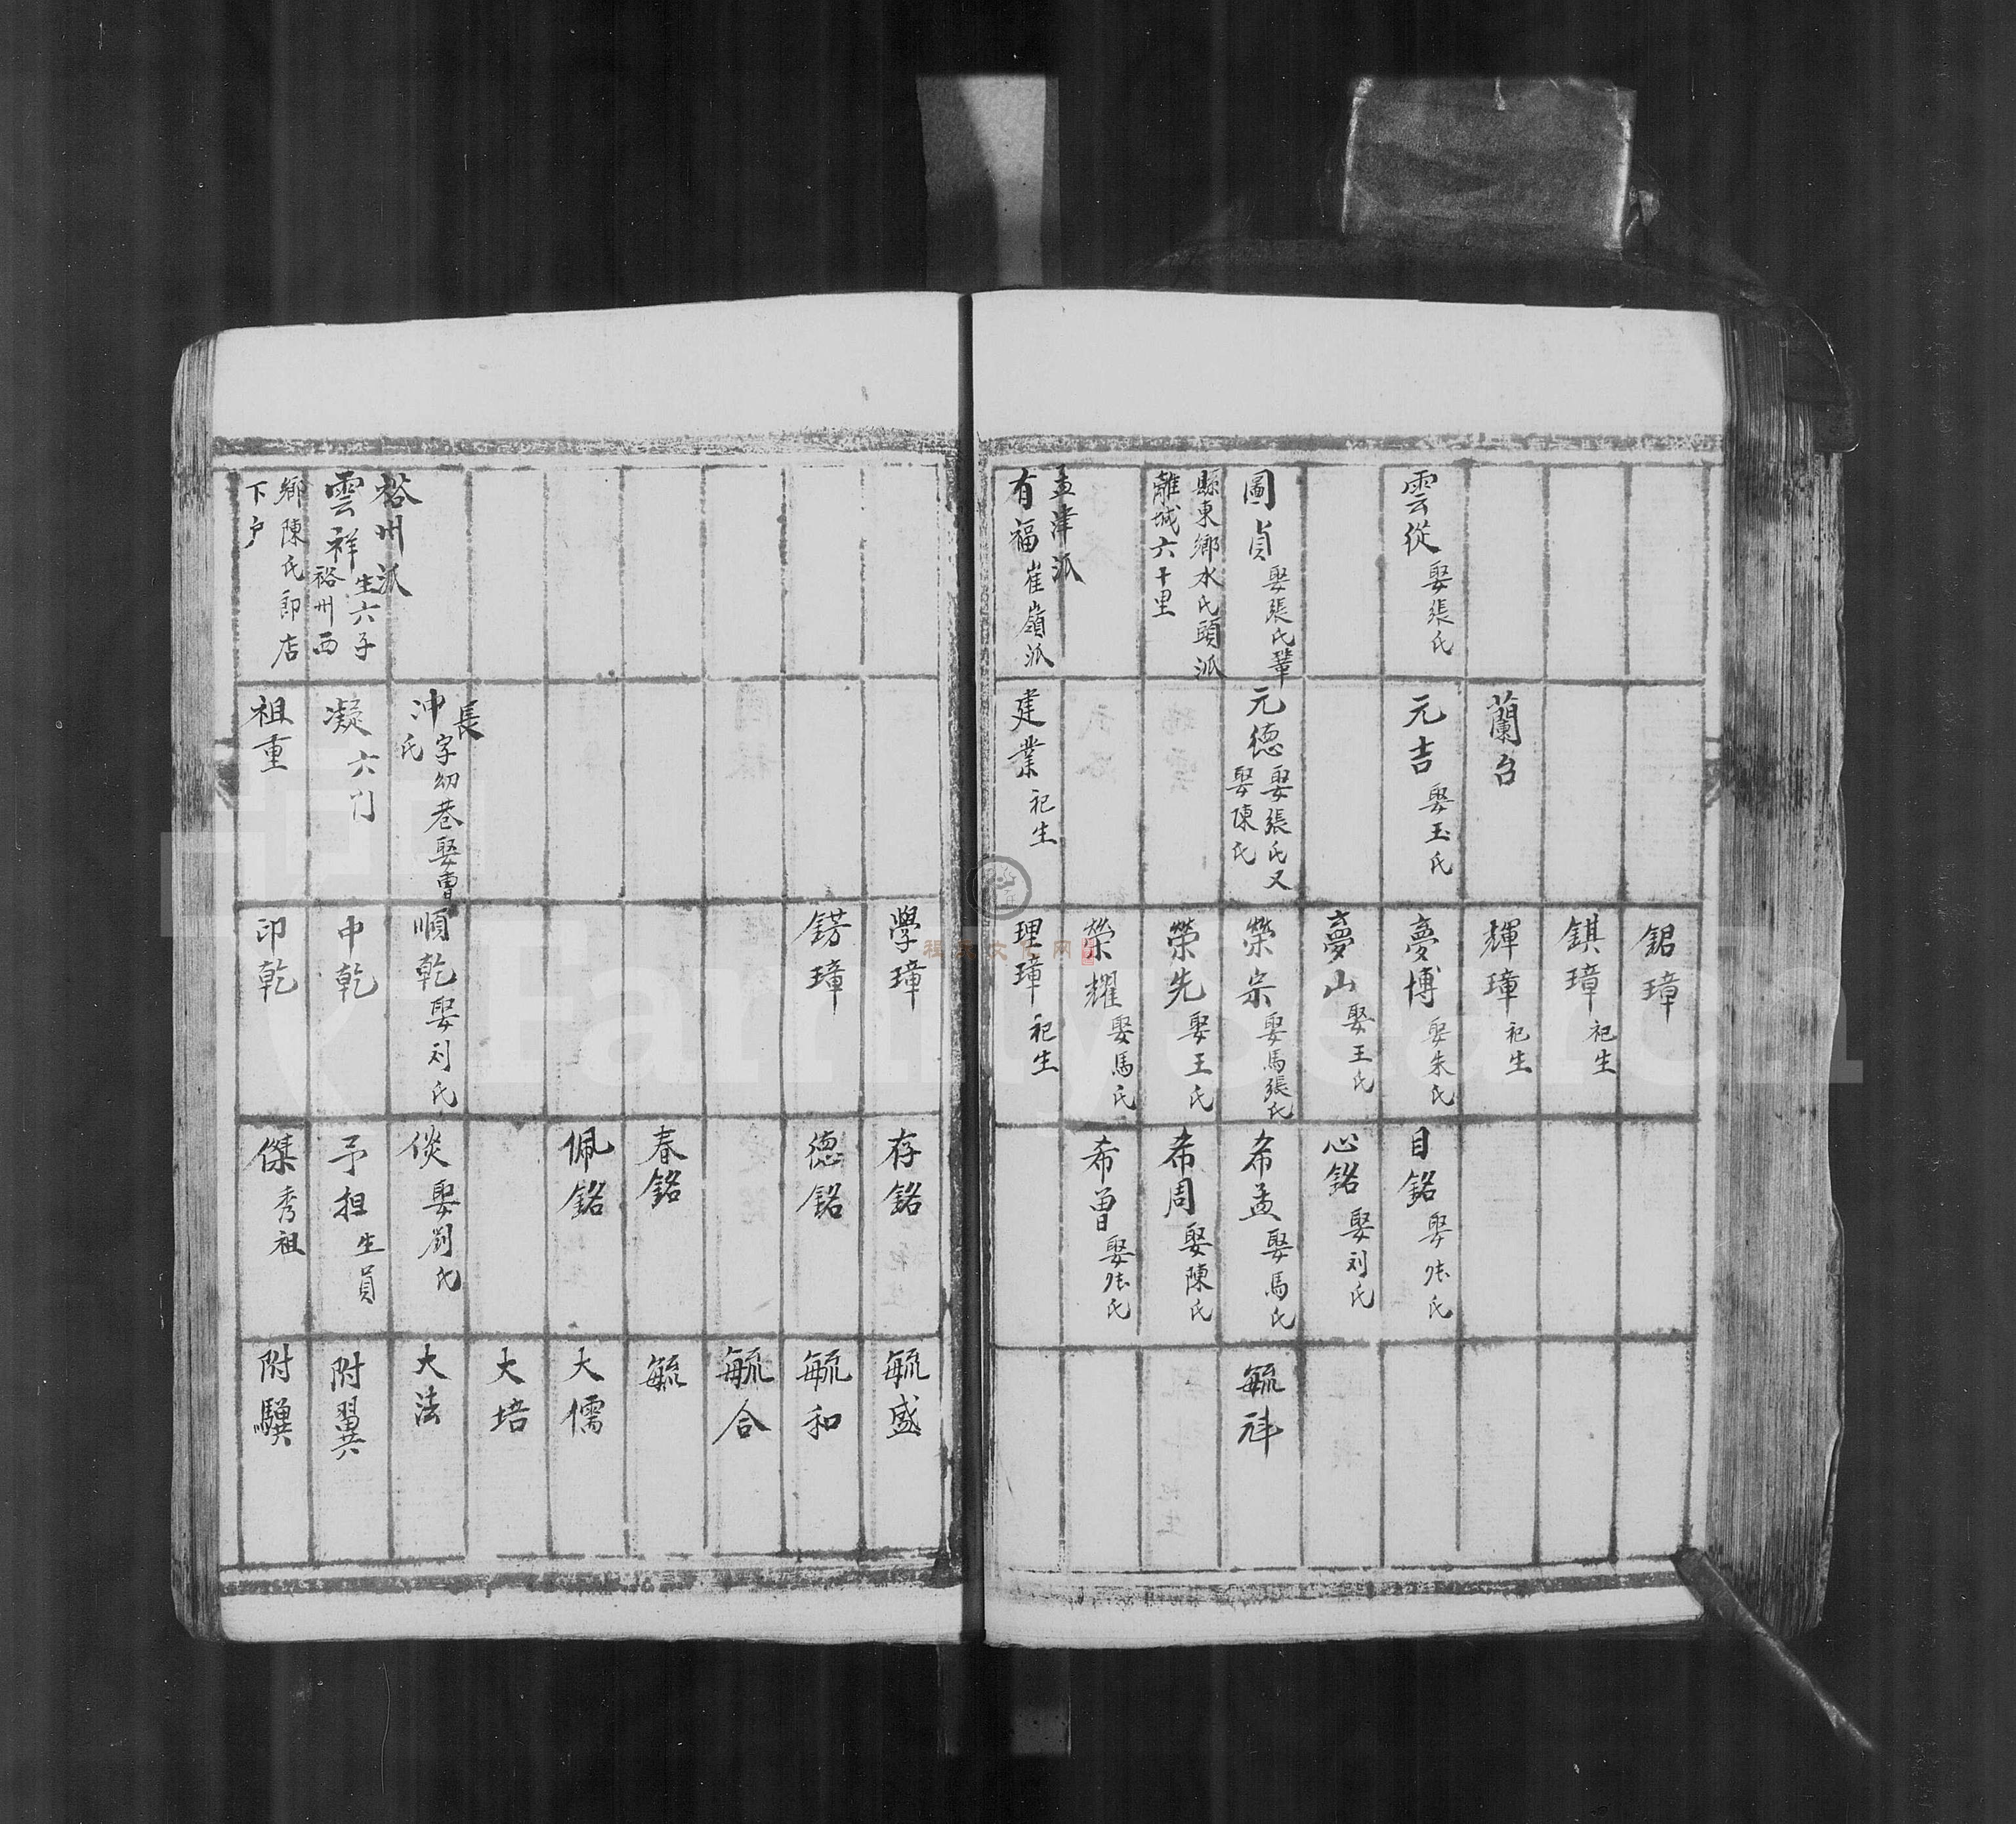 雲從 娶張氏
圖貞 娶張氏鞏
縣東鄉水氏頭派
離城六十里
孟津派
有福 崔嶺派
蘭台
元吉 娶玉氏
元德 娶張氏又
娶陳氏
建業 祀生
鋁璋
錤璋 祀生
輝璋 祀生
夢博 娶朱氏
夢山 娶王氏
榮宗 娶馬張氏
榮先 娶王氏
榮耀 娶馬氏
理璋 祀生
目銘 娶张氏
心銘 娶刘氏
希孟 娶馬氏
希周 娶陳氏
希曾 娶张氏
毓祥
裕州派
雲祥 生六子
裕州西
鄉陳氏郎店
下户
長
沖 字幼巷娶曹
氏
凝 六门
祖重
學璋
鐒璋
順乾 娶刘氏
中乾
印乾
存銘
德銘
春銘
佩銘
倓 娶劉氏
予担 生員
傑 秀祖
毓盛
毓和
毓合
毓
大儒
大培
大法
附翼
附驥
FamilySearch